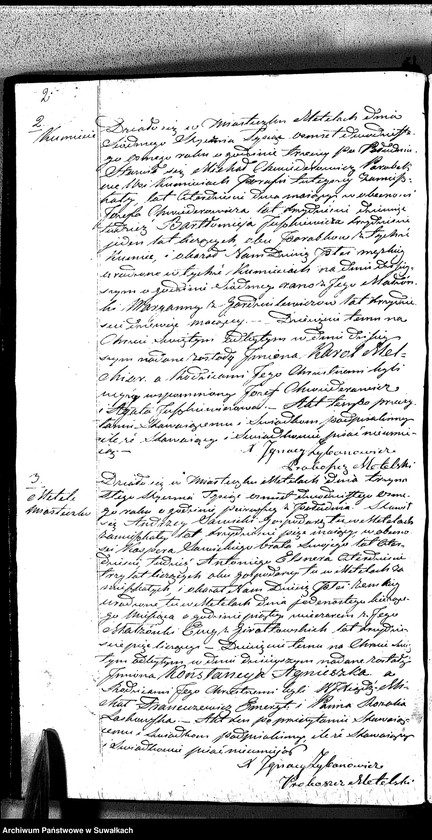 2
2
Kumiecie
Działo się w Miasteczku Metelach dnia
siódmego Stycznia Tysiąc osmset dwudziest
go osmego roku o godzinie trzeciej po Południu
Stawił się Michał Chmiederawicz Parobek
we Wsi Kumieciach Parafii tutejszej zamiesz
kały, lat czterdzieści dwa mający, w obecności
Józefa Chmiederawicza lat trzydzieści
tudzież Bartłomieja Juszkiewicza trzydzieści
jeden lat liczących, obu Parobków z tychże
Kumieć, i okazał Nam Dziecię płci męskiej
urodzone w tychże Kumieciach na dniu dzisiej
szym o godzinie siódmej rano z Jego Małżon
ki Maryanny z lat trzydzie
ści mającej. — Dziecięciu temu na
Chrzcie Świętym odbytym w dniu dzisiej
szym nadane zostały Imiona Karol Mel
chior, a Rodzicami Jego Chrzestnemi byli
wyżej wspomniany Józef Chmiederawicz
i Agata Juszkiewiczowa. — Akt ten po przeczy
taniu Stawającemu i Świadkom podpisaliśmy
ile że Stawający i Świadkowie pisać nieumie
ją. —
X Ignacy Zybanowicz
Proboszcz Metelski
3
Metele
Miasteczko
Działo się w Miasteczku Metelach dnia trzyna
stego Stycznia Tysiąc osmset dwudziestego osme
go roku o godzinie pierwszej z Południa. Stawił
się Andrzej Sławicki Gospodarz tu w Metelach
zamieszkały, lat trzydzieści pięć mający, w obecno
ści Kaspra Sławickiego brata swojego lat czter
dzieści, tudzież Antoniego Elsnera czterdzieści
trzy lat liczących, obu gospodarzy tu w Metelach za
mieszkałych i okazał Nam Dziecię płci żenskiej
urodzone tu w Metelach dnia jedenastego bieżące
go Miesiąca o godzinie piątej wieczorem z Jego
Małżonki Ewy z lat trzydzie
ści pięć liczącej. — Dziecięciu temu na Chrzcie Świę
tym odbytym w dniu dzisiejszym nadane zostały
Imiona Konstancya Agnieszka a
Rodzicami Jego Chrzestnemi byli W. Ksiądz Mi
chał Franciszewicz Emeryt i Panna Rozalia
Lachowska. — Akt ten po przeczytaniu Stawają
cemu i Świadkom podpisaliśmy, ile że Stawający
i Świadkowie pisać nieumieją
X Ignacy Zybanowicz
Proboszcz Metelski
Archiwum Państwowe w Suwałkach